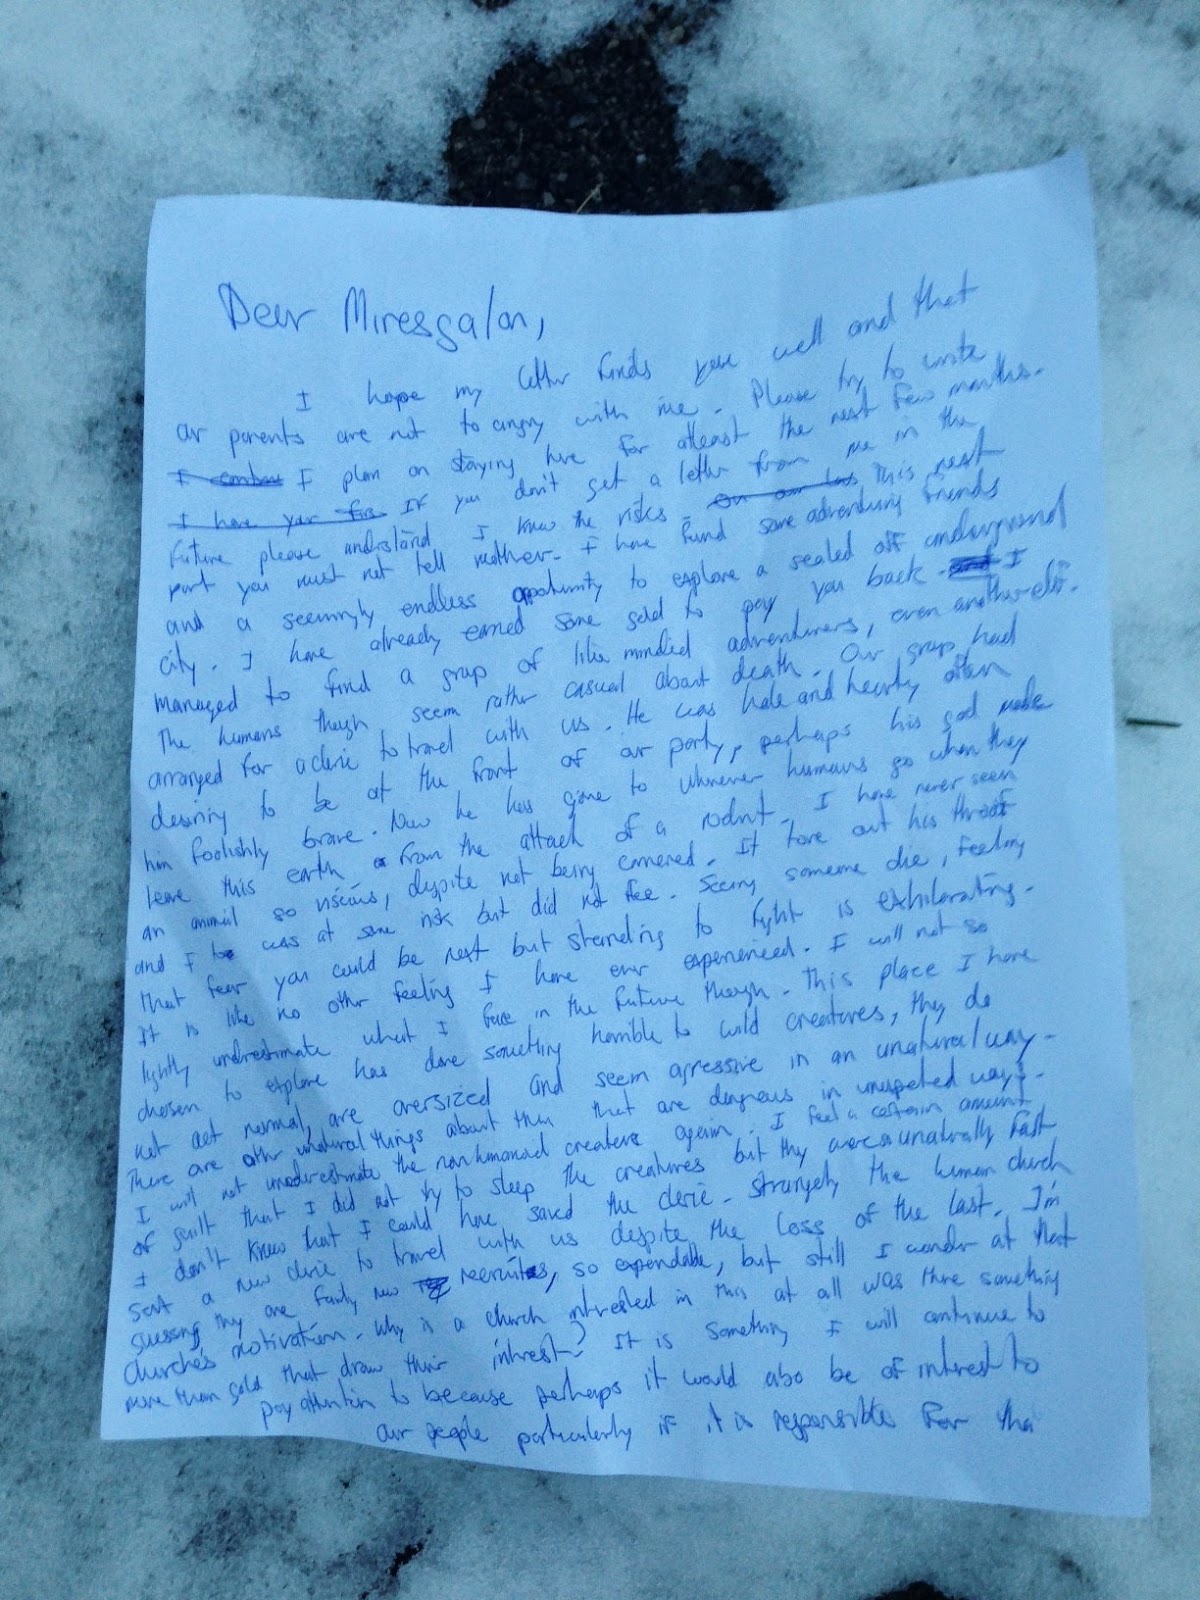 Dear Miresgalan,
I hope my letter finds you well and that
our parents are not to angry with me. Please try to write
I plan on staying here for atleast the next few months.
I have your If you don't get a letter from me in the
future please understand I knew the risks. this next
part you must not tell mother. I have fund some adventuring friends
and a seemingly endless opportunity to explore a sealed off underground
city. I have already earned some gold to pay you back. I
managed to find a group of like minded adventurers, even another elf.
The humans though seem rather casual about death. Our group had
arranged for a cleric to travel with us. He was hale and hearty often
desiring to be at the front of our party, perhaps his god made
him foolishly brave. Now he has gone to wherever humans go when they
leave this earth from the attack of a rodent. I have never seen
an animal so viscius, despite not being cornered. It tore out his throat
and I was at some risk but did not flee. Seeing someone die, feeling
that fear you could be next but standing to fight is exhilorating.
It is like no other feeling I have ever experienced. I will not so
lightly underestimate what I face in the future though. This place I have
chosen to explore has done something horrible to wild creatures, they do
not act normal, are oversized and seem agressive in an unatural way.
There are other unatural things about them that are dangerous in unexpeted ways.
I will not underestimate the nonhumanoid creature again. I feel a certain amount
of guilt that I did not try to sleep the creatures but they were unaturally fast
I don't know that I could have saved the cleric. Strangely the human church
sent a new cleric to travel with us despite the loss of the last. I'm
guessing they are fairly new recruites, so expendable, but still I wonder at that
churche's motivation. Why is a church intrested in this at all was there something
more than gold that draw their intrest? It is something I will continue to
pay attention to because perhaps it would also be of interest to
our people particularly if it is responsible for tha